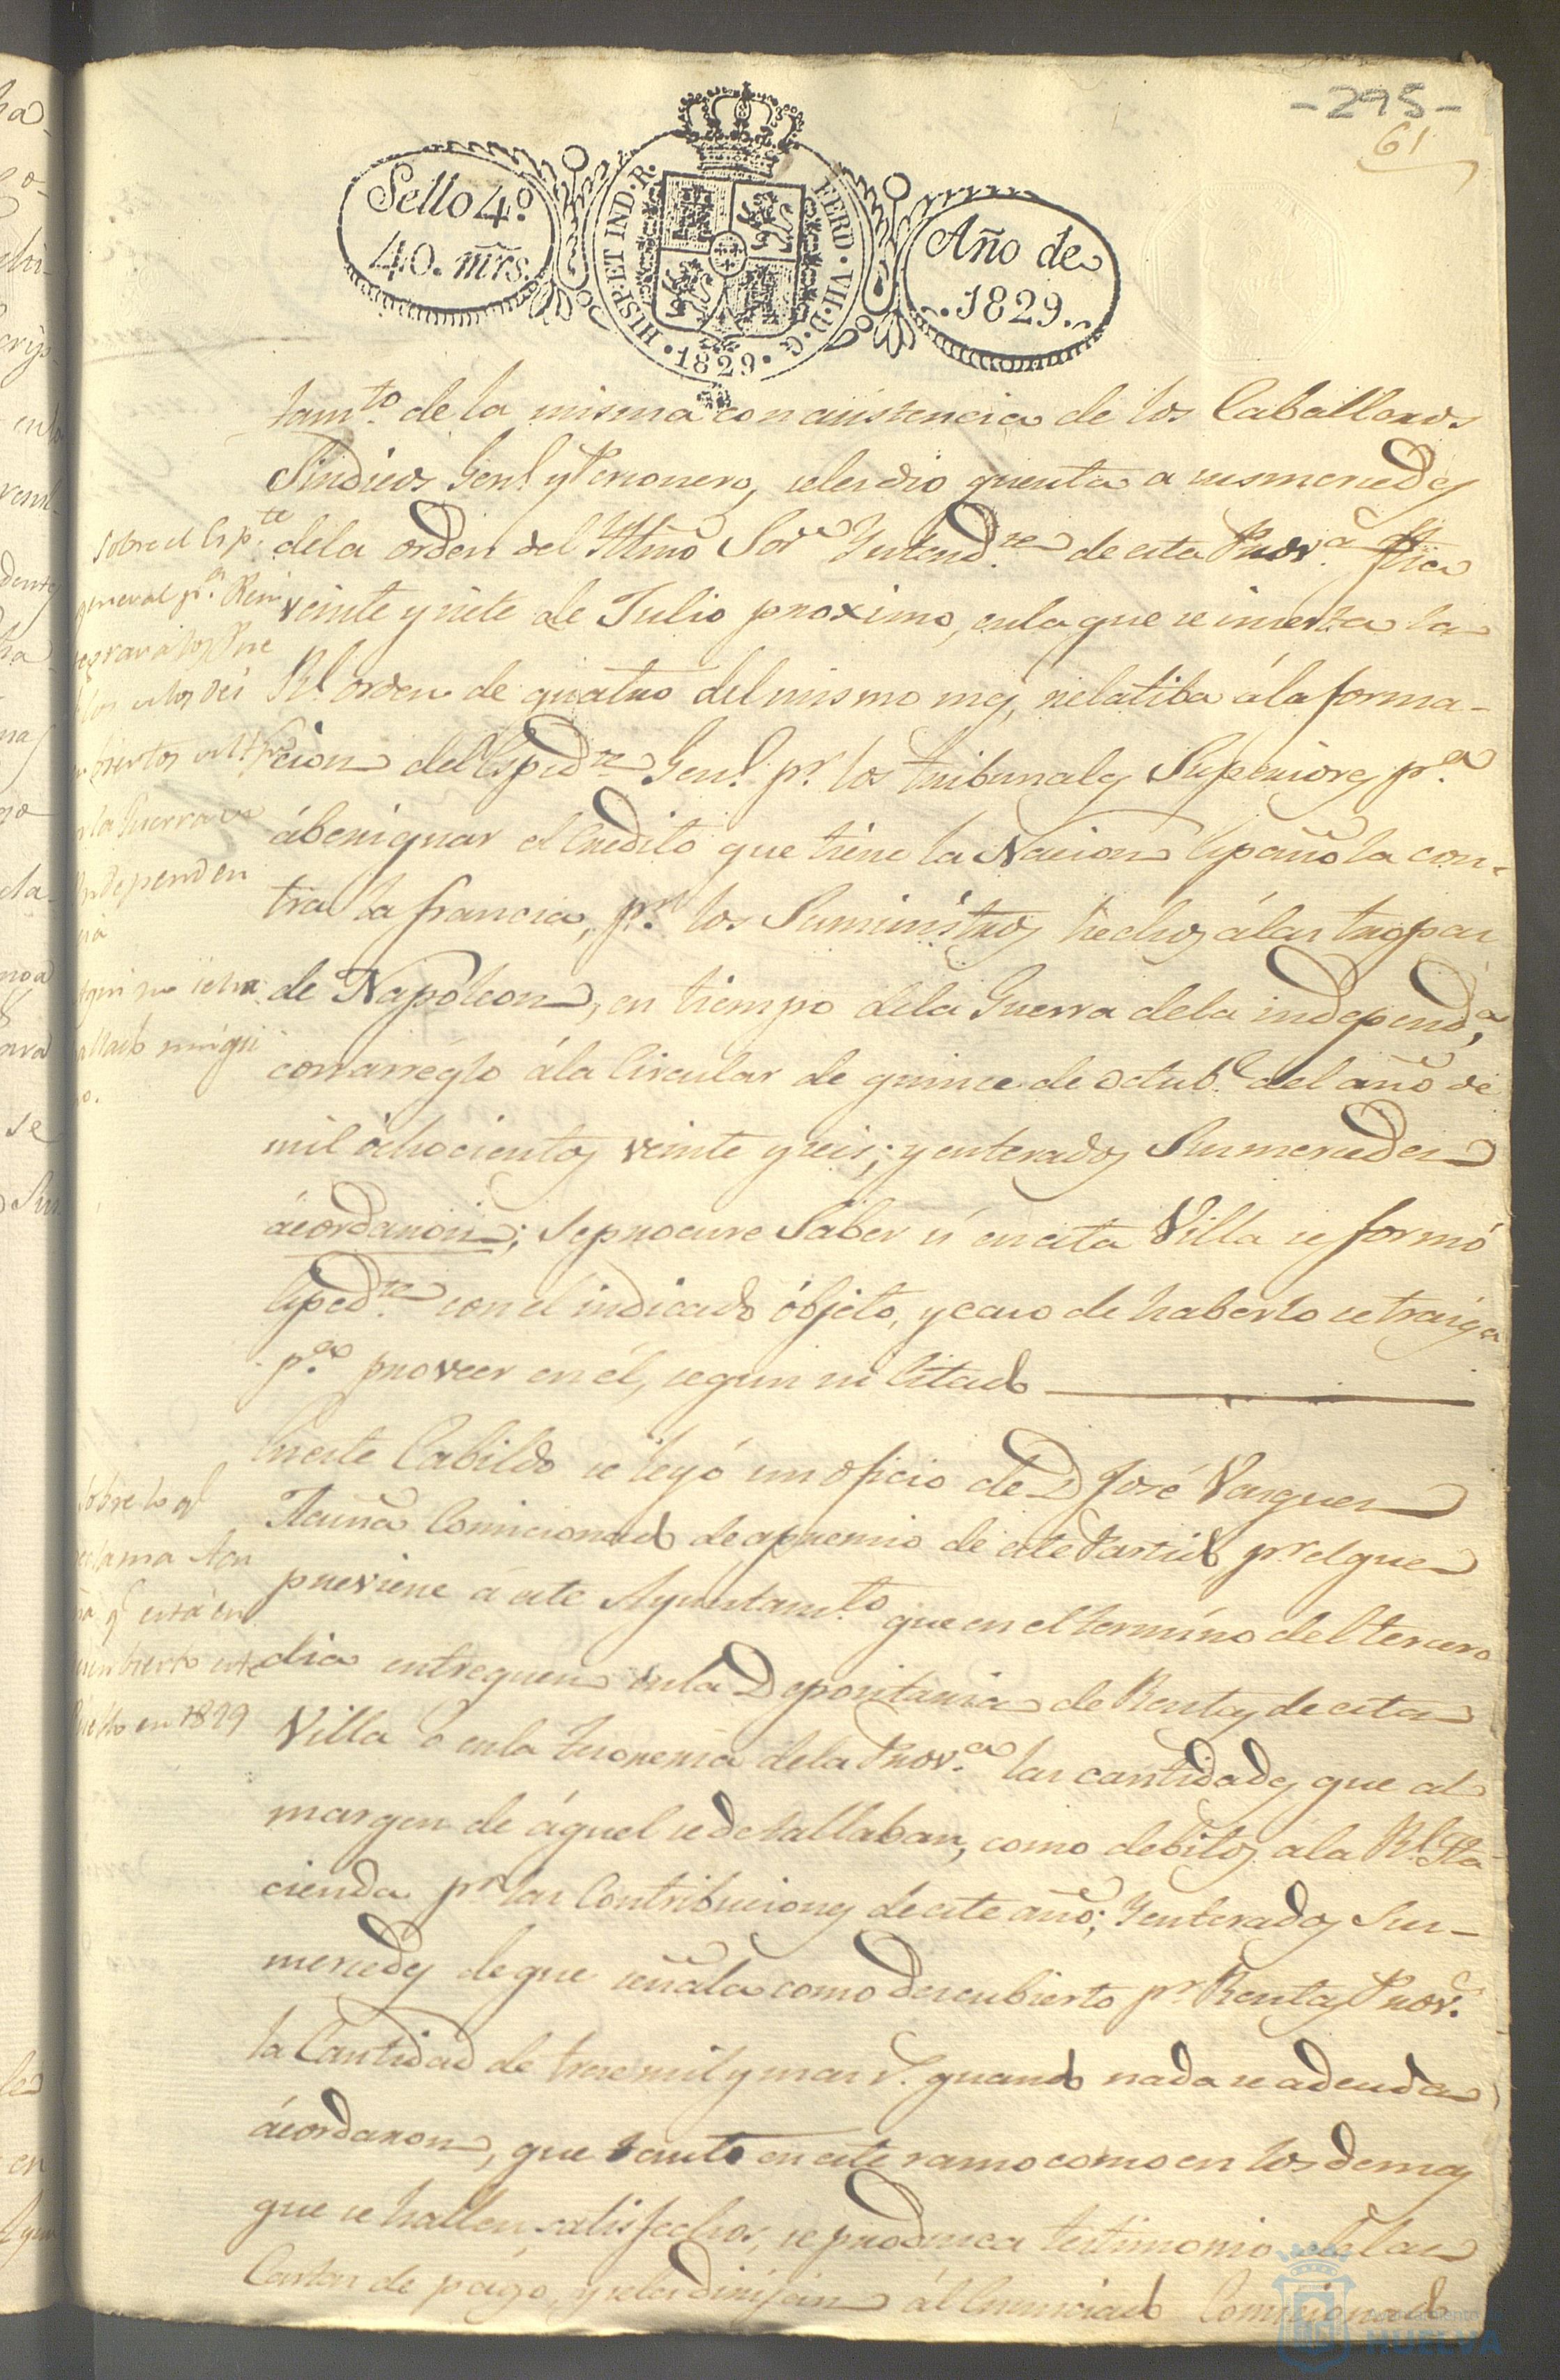 -295-
61
Sello 4º
40. mrs.
HISP·ET IND·R. FERD·VII·D·G· 1829·
Año de
1829.
tamto. de la misma con asistencia de los Caballeros
Sindicos Genl. y Personero, seles dio quenta a susmercedes
dela orden del Yltmo Sor Yntendte. de esta Prova. fha
veinte y siete de Julio proximo, enla que se inserta la
Rl. orden de quatro del mismo mes, relatiba á la forma-
cion del Espedte Genl. pr. los tribunales Superiores pa.
ábeniguar el Credito que tiene la Nacion Española con-
tra la francia, pr. los Suministros hechos álas tropas
de Napoleon, en tiempo dela Guerra dela independa,
con arreglo ála Circular de quince de Octube. del año de
mil ochocientos veinte y seis; y enterados Susmercedes
ácordaron; Se procure Saber si en esta Villa se formó
Espedte. con el indicado óbjeto, y caso de haberlo se traiga
pa. proveer en él, segun su Estado
En este Cabildo se leyó un oficio de D José Vasquez
Acuña Comicionado de apremio de este Partido pr. el que
previene á este Ayuntamto. que en el termino del tercero
dia entreguen en la Depositaria de Rentas de esta
Villa o en la tesoreria dela Prova. las cantidades que al
margen de áquel se detallaban, como debitos ala Rl. Ha-
cienda pr las Contribuciones de este año; Y enterados Sus-
mercedes de que señala como descubierto pr. Rentas Prov.
la Cantidad de trese mil y mas r. quando nada se adeuda
ácordaron, que tanto en este ramo como en los demas
que se hallen satisfechos, se produsca testimonio de las
Cartas de pago, y se les dirijan ál Enunciado Comicionado
Sobre el Espte.
general pa. Rein
tegrar a los Pue
blos de los des
cubiertos
en la Guerra de
Independen
cia
Aqui no se ha
allado ningu
no.
Sobre lo ql
reclama Acu
ña ql. está en
descubierto este
Pueblo en 1829
Ayuntamiento de
HUELVA